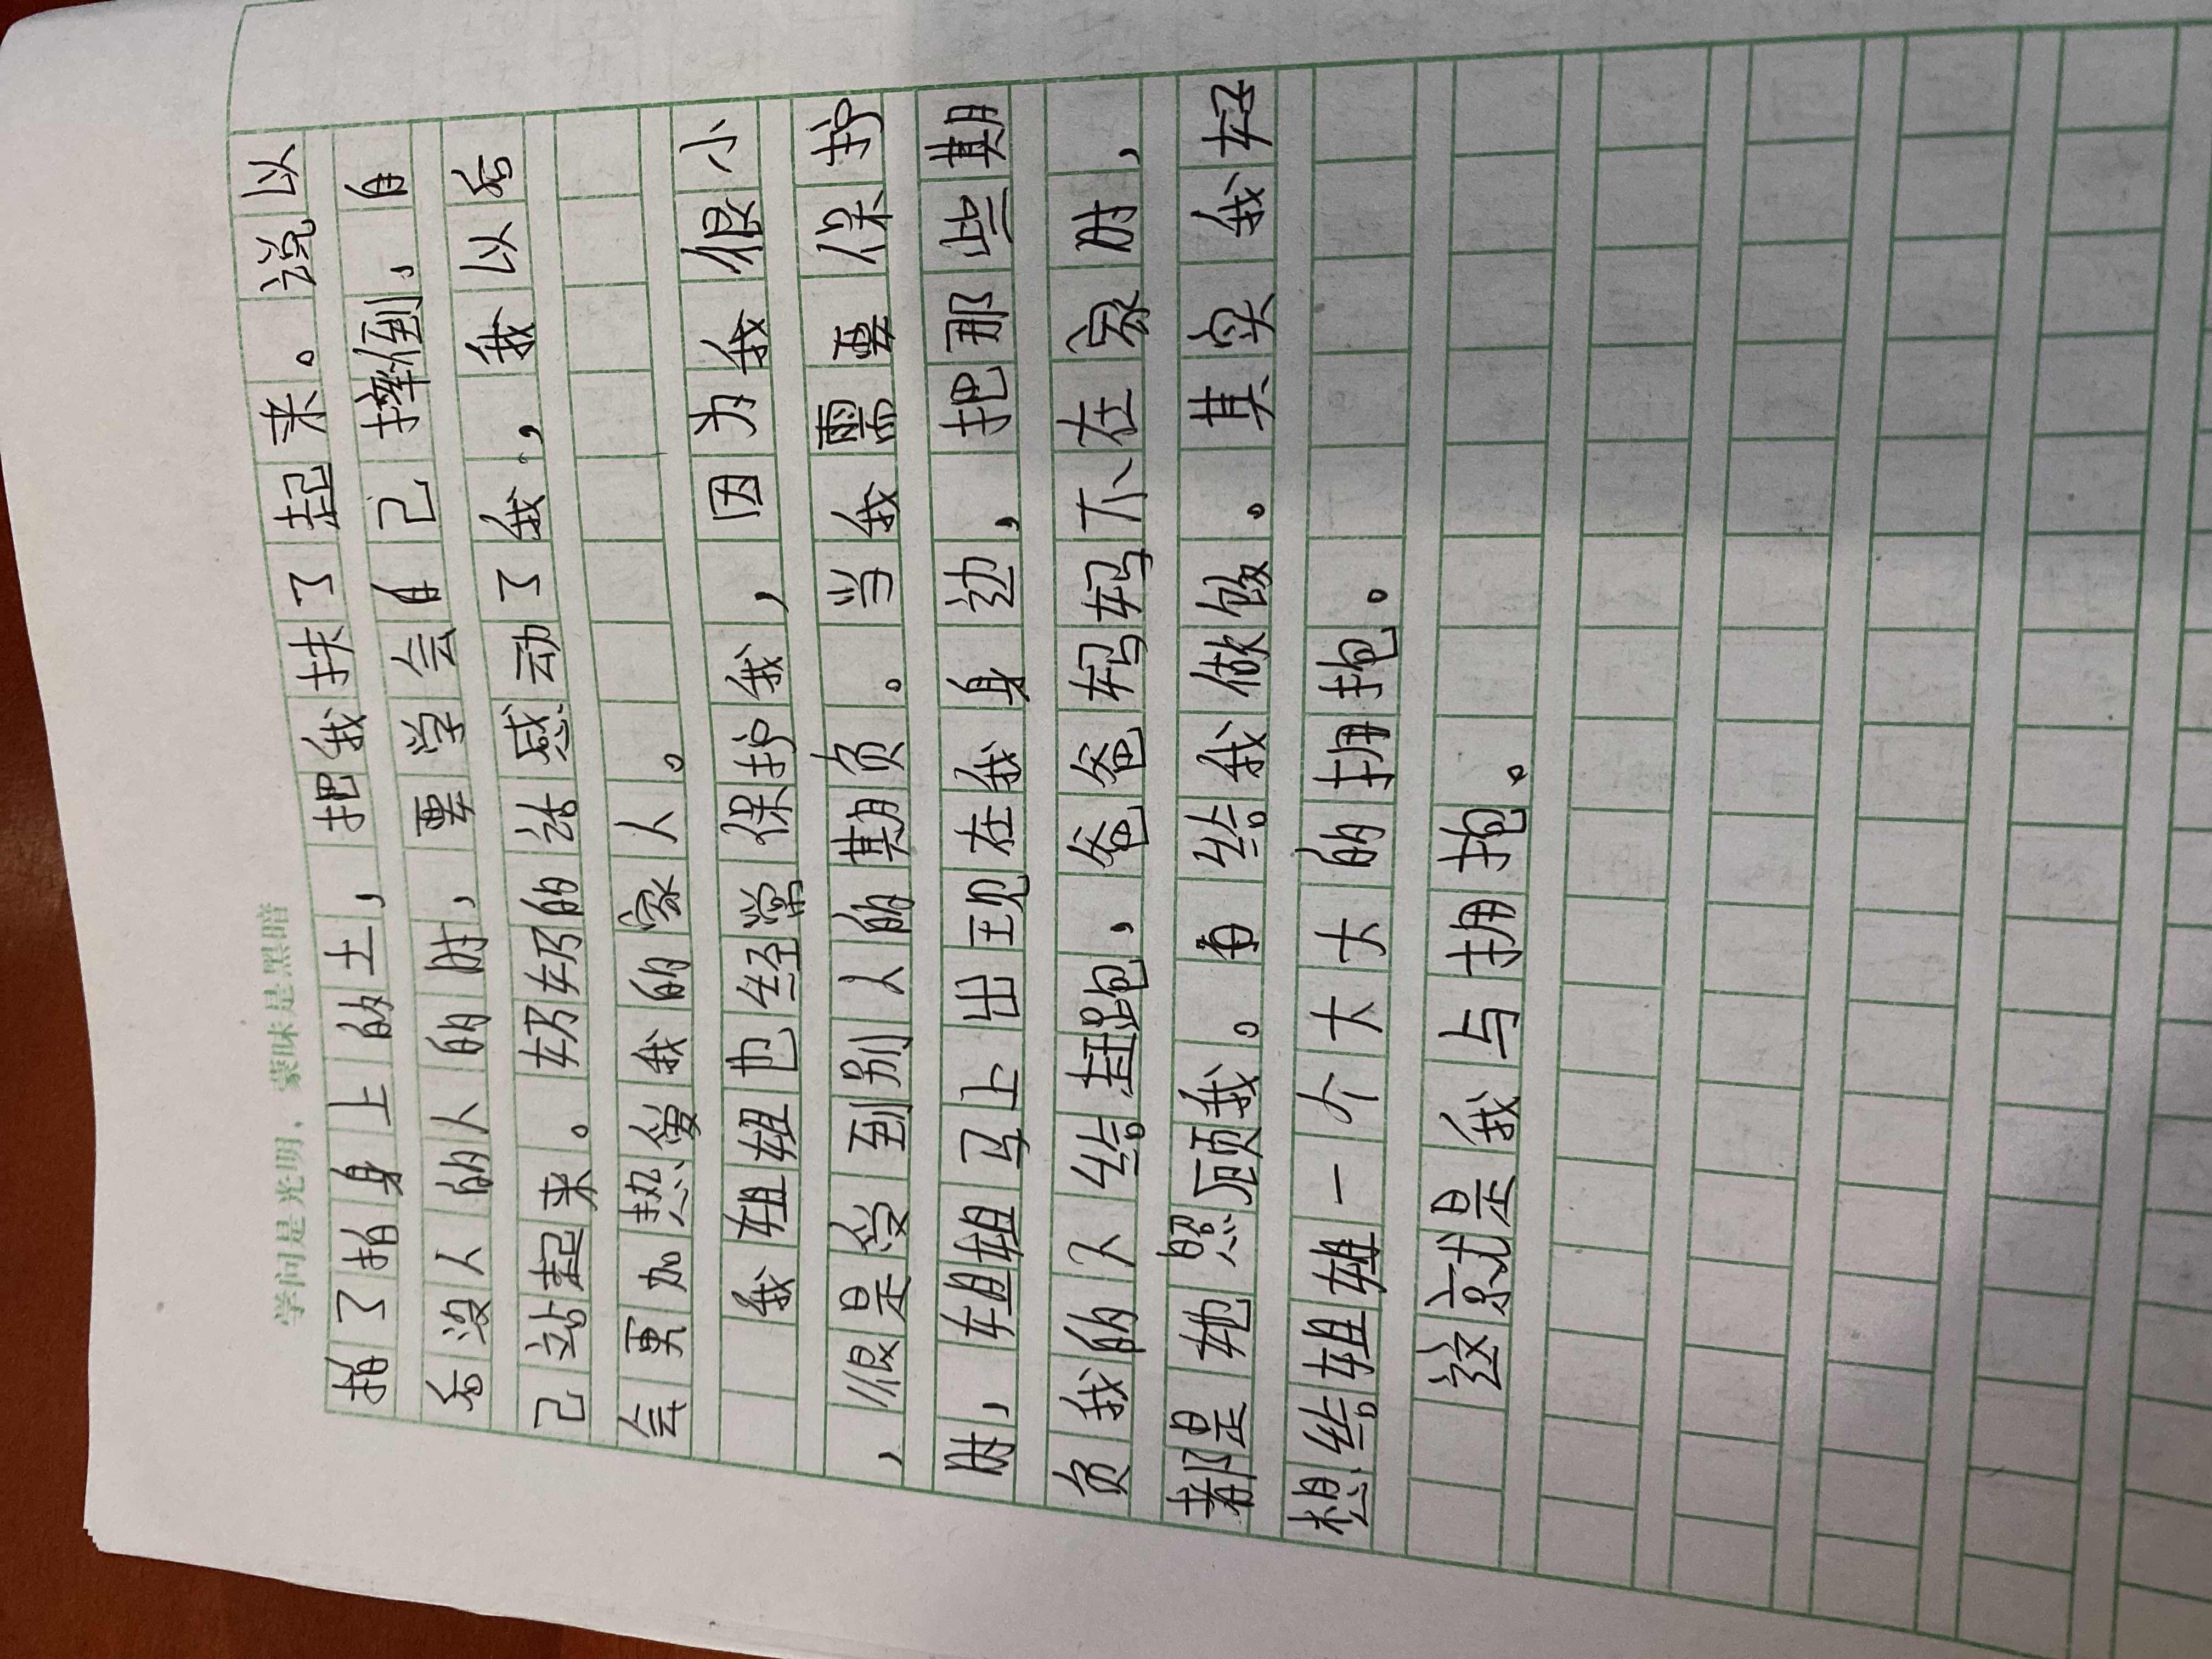 学问是光明，蒙昧是黑暗
拍了拍身上的土，把我扶了起来。说以
后没人的人的时，要学会自己摔倒，自
己站起来。奶奶的话感动了我..，我以后
会更加热爱我的家人。
我姐姐也经常保护我，因为我很小
，很是受到别人的期负。当我需要保护
时，姐姐马上出现在我身边，把那些期
负我的人给赶跑，爸爸妈妈不在家时，
都是她照顾我。自给我做饭。其实我好
想给姐姐一个大大的拥抱。
这就是我与拥抱。